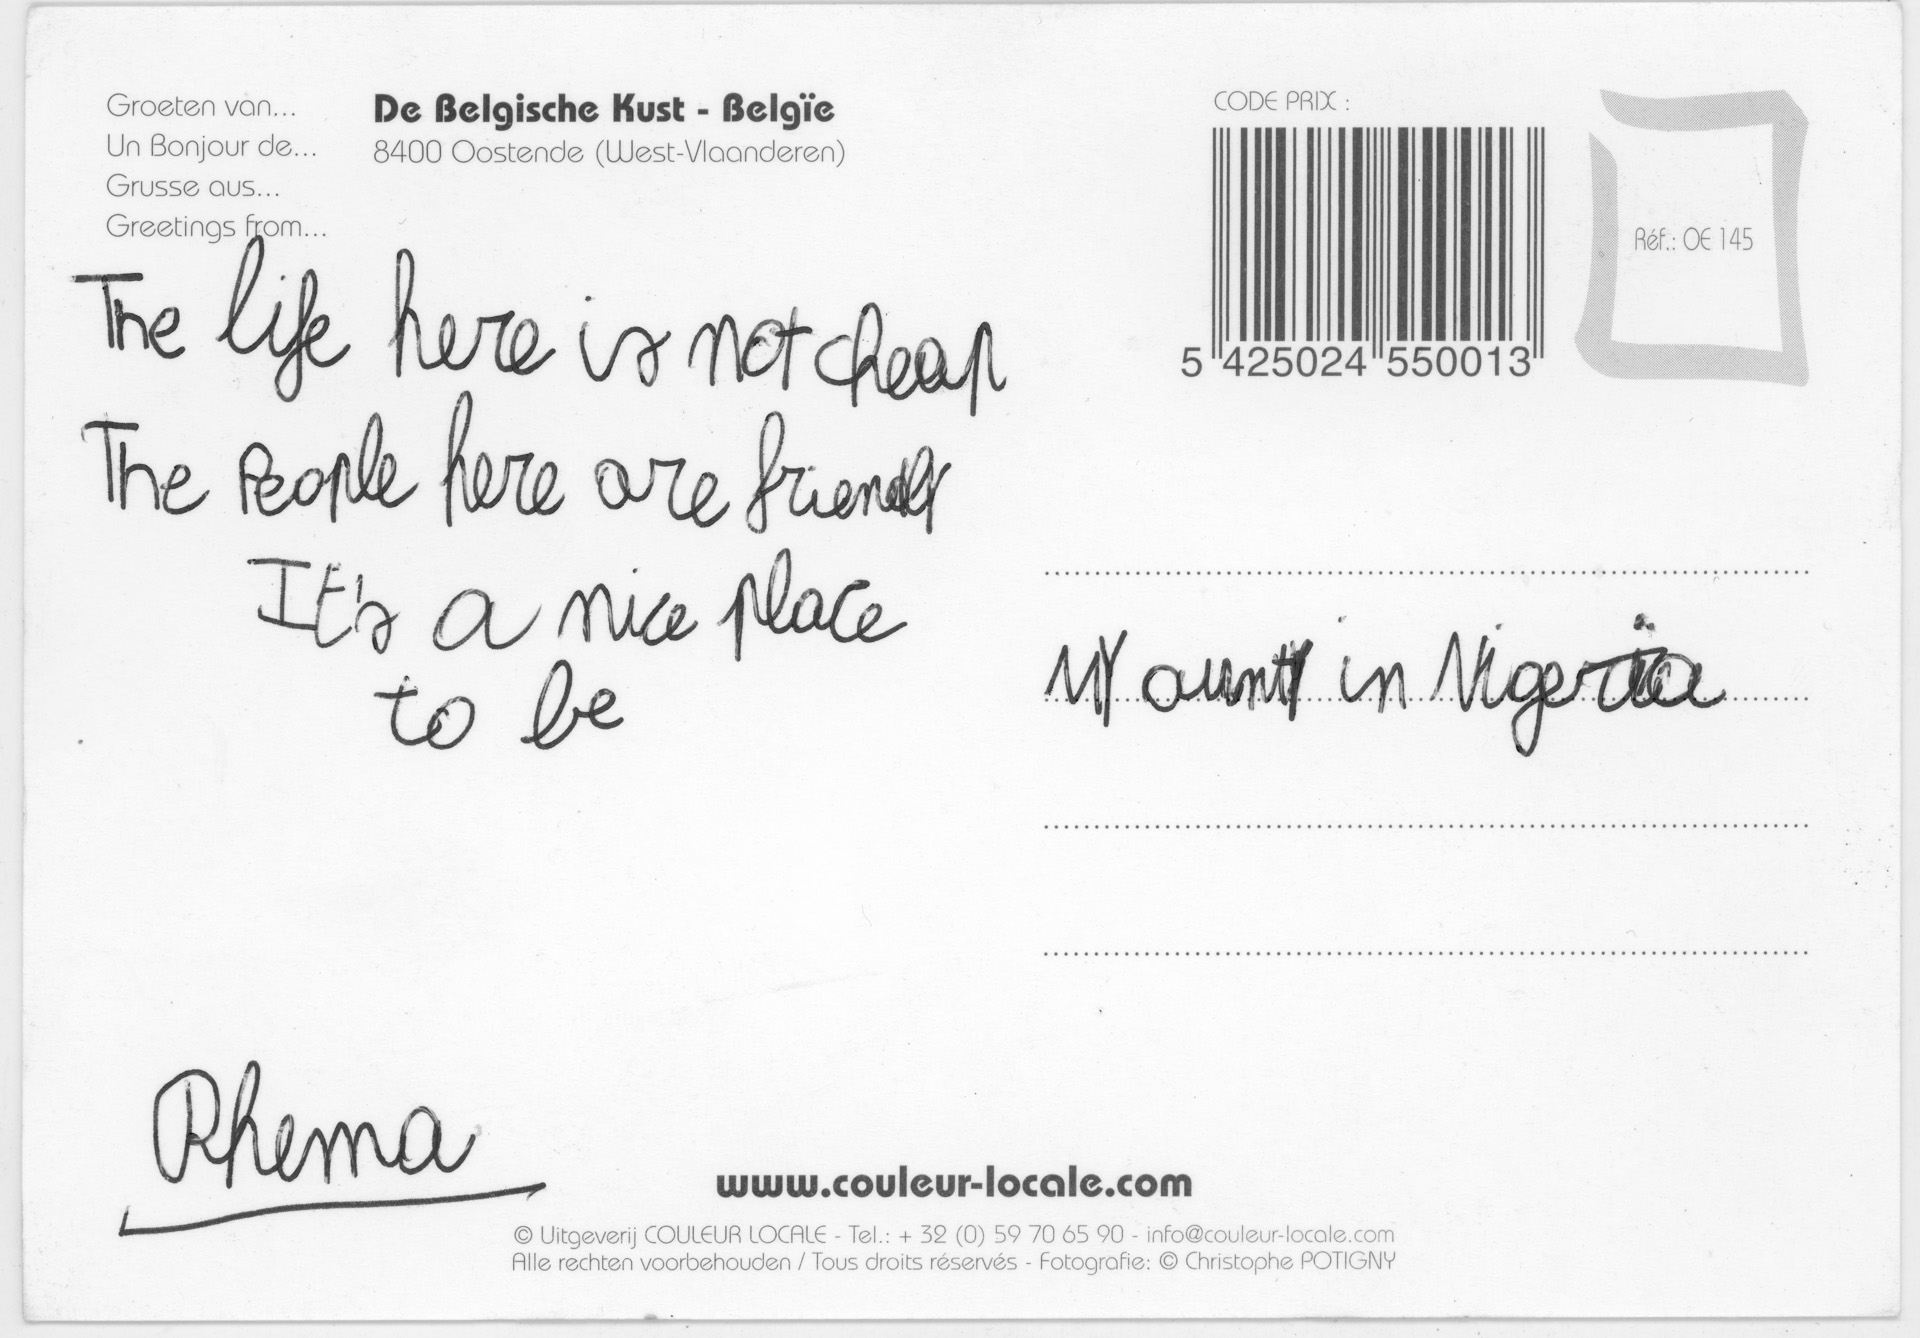 Groeten van...
Un Bonjour de...
Grusse aus...
Greetings from...
De Belgische Kust - Belgïe
8400 Oostende (West-Vlaanderen)
CODE PRIX :
5 425024 550013
Réf.: OE 145
The life here is not cheap
The People here are friendly
It's a nice place
to be
My aunty in Nigeria
Rhema
www.couleur-locale.com
© Uitgeverij COULEUR LOCALE - Tel.: + 32 (0) 59 70 65 90 - info@couleur-locale.com
Alle rechten voorbehouden / Tous droits réservés - Fotografie: © Christophe POTIGNY